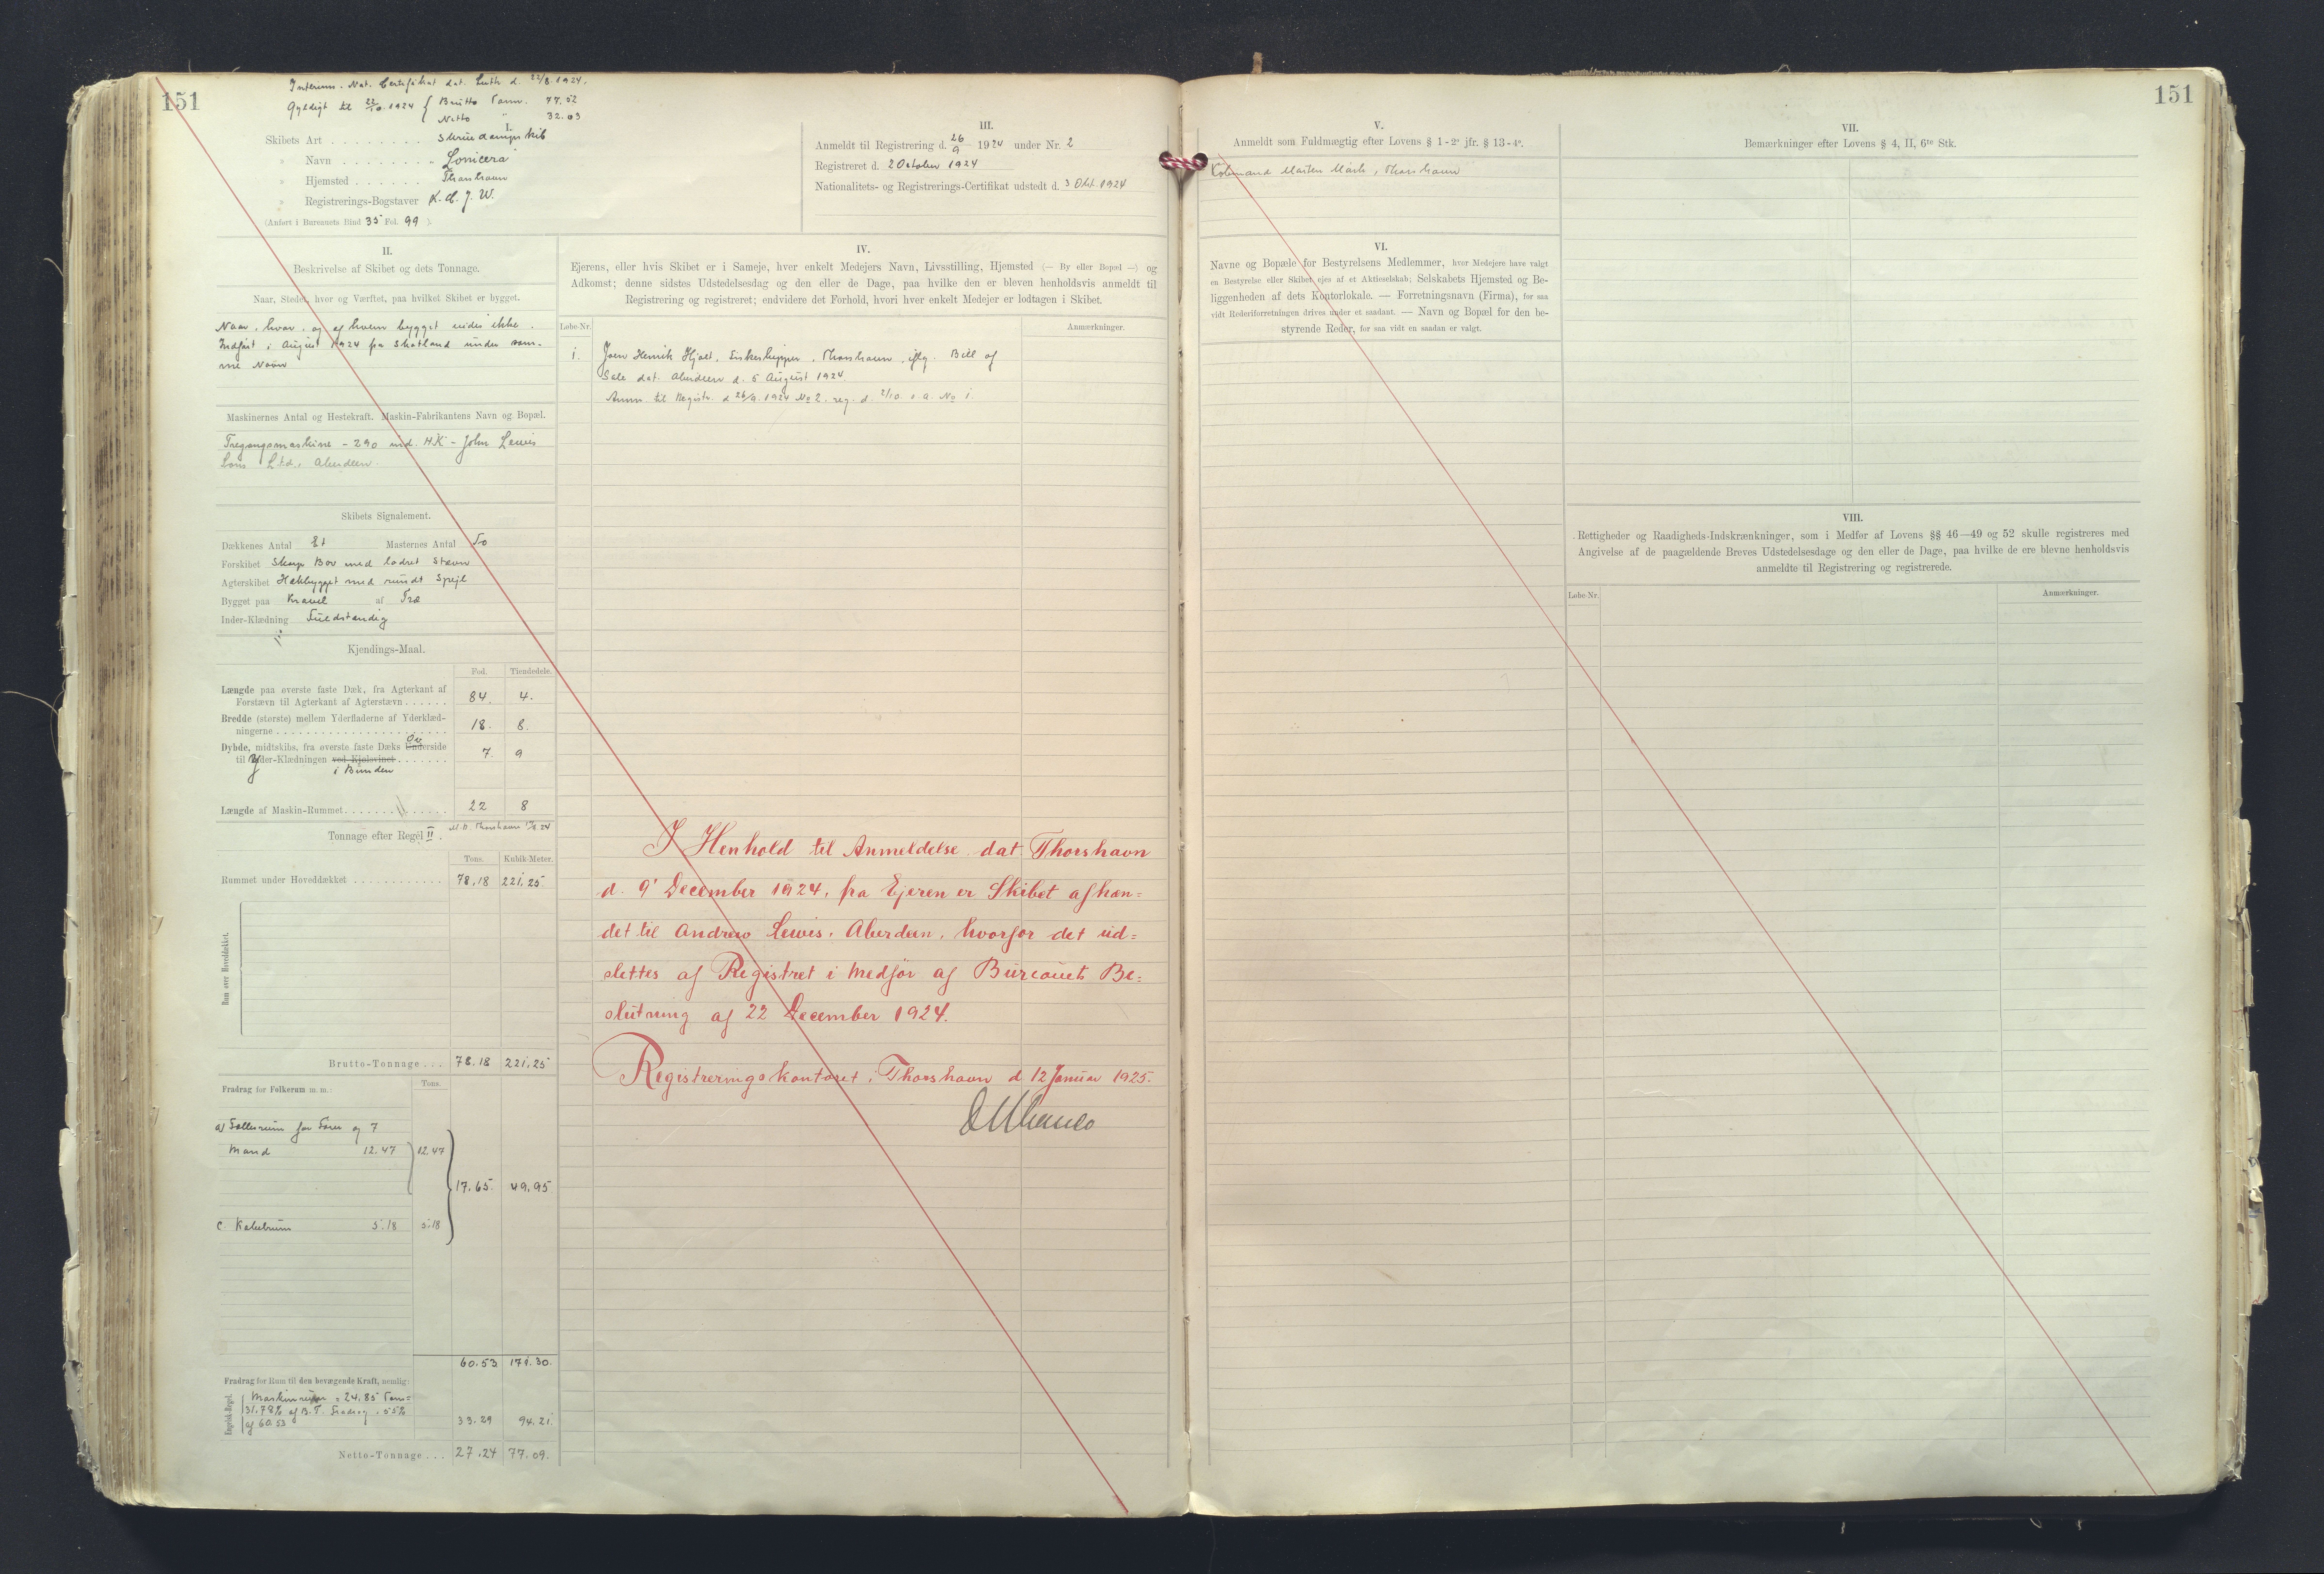 151
Interims. Nat. Certifikat dat. Leith d. 22/8. 1924.
Gyldigt til 22/10. 1924 { Brutto Tonn. 77.52
Netto " 32.03
I.
Skibets Art . . . . . . . . Skruedampskib
» Navn . . . . . . . . Lonicera
» Hjemsted . . . . . . Thorshavn
» Registrerings-Bogstaver
(Anført i Bureauets Bind 35 Fol. 99 ).
III.
Anmeldt til Registrering d. 26/9 1924 under Nr. 2
Registreret d. 2 October 1924
Nationalitets- og Registrerings-Certifikat udstedt d. 3 Okt. 1924
II.
Beskrivelse af Skibet og dets Tonnage.
Naar, Stedet, hvor og Værftet, paa hvilket Skibet er bygget.
Naar, hvor, og af hvem bygget vides ikke.
Indført i August 1924 fra Skotland under sam-
me Navn
Maskinernes Antal og Hestekraft. Maskin-Fabrikantens Navn og Bopæl.
Tregangsmaskine - 290 ind. HK - John Lewis
Sons Ltd., Aberdeen.
Skibets Signalement.
Dækkenes Antal Et Masternes Antal To
Forskibet Skarp Bov med lodret Stævn
Agterskibet Hækbygget med rundt Spejl
Bygget paa Kravel af Træ
Inder-Klædning Fuldstændig
Kjendings-Maal.
Fod. Tiendedele.
Længde paa øverste faste Dæk, fra Agterkant af
Forstævn til Agterkant af Agterstævn . . . . . . 84. 4.
Bredde (største) mellem Yderfladerne af Yderklæd-
ningerne . . . . . . 18. 8.
Dybde, midtskibs, fra øverste faste Dæks Underside
til Yder-Klædningen ved Kjølsvinet . . . . . . 7. 9
i Bunden
Længde af Maskin-Rummet . . . . . . 22 8
Tonnage efter Regel II.
Tons. Kubik-Meter.
Rummet under Hoveddækket . . . . . . 78,18 221,25
Rum over Hoveddækket.
Brutto-Tonnage . . . 78.18 221,25
Fradrag for Folkerum m. m.: Tons.
a) Lukrum for Fører og 7
Mand 12.47 12.47
17.65. 49.95
c. 5.18 5.18
60.53 171.30.
Fradrag for Rum til den bevægende Kraft, nemlig:
Engelsk-Regel.
Maskinrum = 24.85 Tons =
31.78% af B.T. Fradrag 55%
af 60.53 33.29 94.21.
Netto-Tonnage . . . 27.24 77.09.
IV.
Ejerens, eller hvis Skibet er i Sameje, hver enkelt Medejers Navn, Livsstilling, Hjemsted (— By eller Bopæl —) og
Adkomst; denne sidstes Udstedelsesdag og den eller de Dage, paa hvilke den er bleven henholdsvis anmeldt til
Registrering og registreret; endvidere det Forhold, hvori hver enkelt Medejer er lodtagen i Skibet.
Løbe-Nr. Anmærkninger.
1. Joen Henrik Hjalt, Fiskeskipper, Thorshavn, iflg. Bill of
Sale dat. Aberdeen d. 5 August 1924.
Anm. til Registr. d 26/9. 1924 No 2. reg. d. 2/10. s. a. No 1.
I Henhold til Anmeldelse dat Thorshavn
d. 9' December 1924, fra Ejeren er Skibet afhæn=
det til Andrew Lewis, Aberdeen, hvorfor det ud=
slettes af Registret i Medfør af Bureauets Be=
slutning af 22 December 1924.
Registreringskontoret i Thorshavn d 12 Januar 1925.
151
V.
Anmeldt som Fuldmægtig efter Lovens § 1-2º jfr. § 13-4º.
Købmand Morten Mørk, Thorshavn
VI.
Navne og Bopæle for Bestyrelsens Medlemmer, hvor Medejere have valgt
en Bestyrelse eller Skibet ejes af et Aktieselskab; Selskabets Hjemsted og Be-
liggenheden af dets Kontorlokale. — Forretningsnavn (Firma), for saa
vidt Rederiforretningen drives under et saadant. — Navn og Bopæl for den be-
styrende Reder, for saa vidt en saadan er valgt.
VII.
Bemærkninger efter Lovens § 4, II, 6te Stk.
VIII.
Rettigheder og Raadigheds-Indskrænkninger, som i Medfør af Lovens §§ 46—49 og 52 skulle registreres med
Angivelse af de paagældende Breves Udstedelsesdage og den eller de Dage, paa hvilke de ere blevne henholdsvis
anmeldte til Registrering og registrerede.
Løbe-Nr. Anmærkninger.